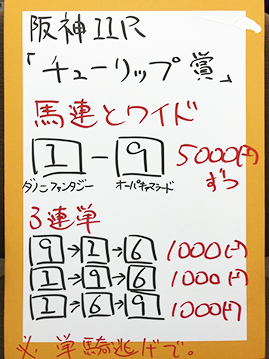 阪神11R
「チューリップ賞」
馬連とワイド
1 - 9 5000円ずつ
ダノンファンタジー オーパキャマラード
3連単
9→1→6 1000円
1→9→6 1000円
1→6→9 1000円
※単騎逃げで。